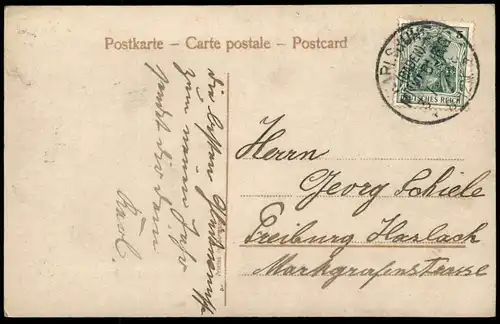 Postkarte – Carte postale – Postcard
DEUTSCHES REICH
Die besten Glückwünsche
zum neuen Jahr
sendet dir dein
Karl.
Herrn
Georg Schiele
Freiburg Haslach
Markgrafenstrasse